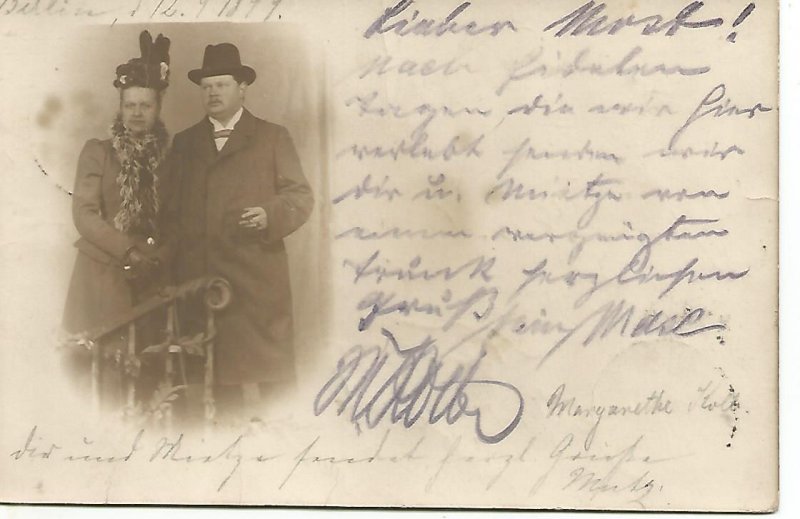 Berlin, d 12. 9 1899.
Lieber Most!
Nach fidelen
Tagen, die wir hier
verlebt senden wir
dir u. Mietze von
einem vergnügten
Trunk herzlichen
Gruß, dein Max
M Kolbe
Margarethe Kolbe.
dir und Mietze sendet herzl Grüße